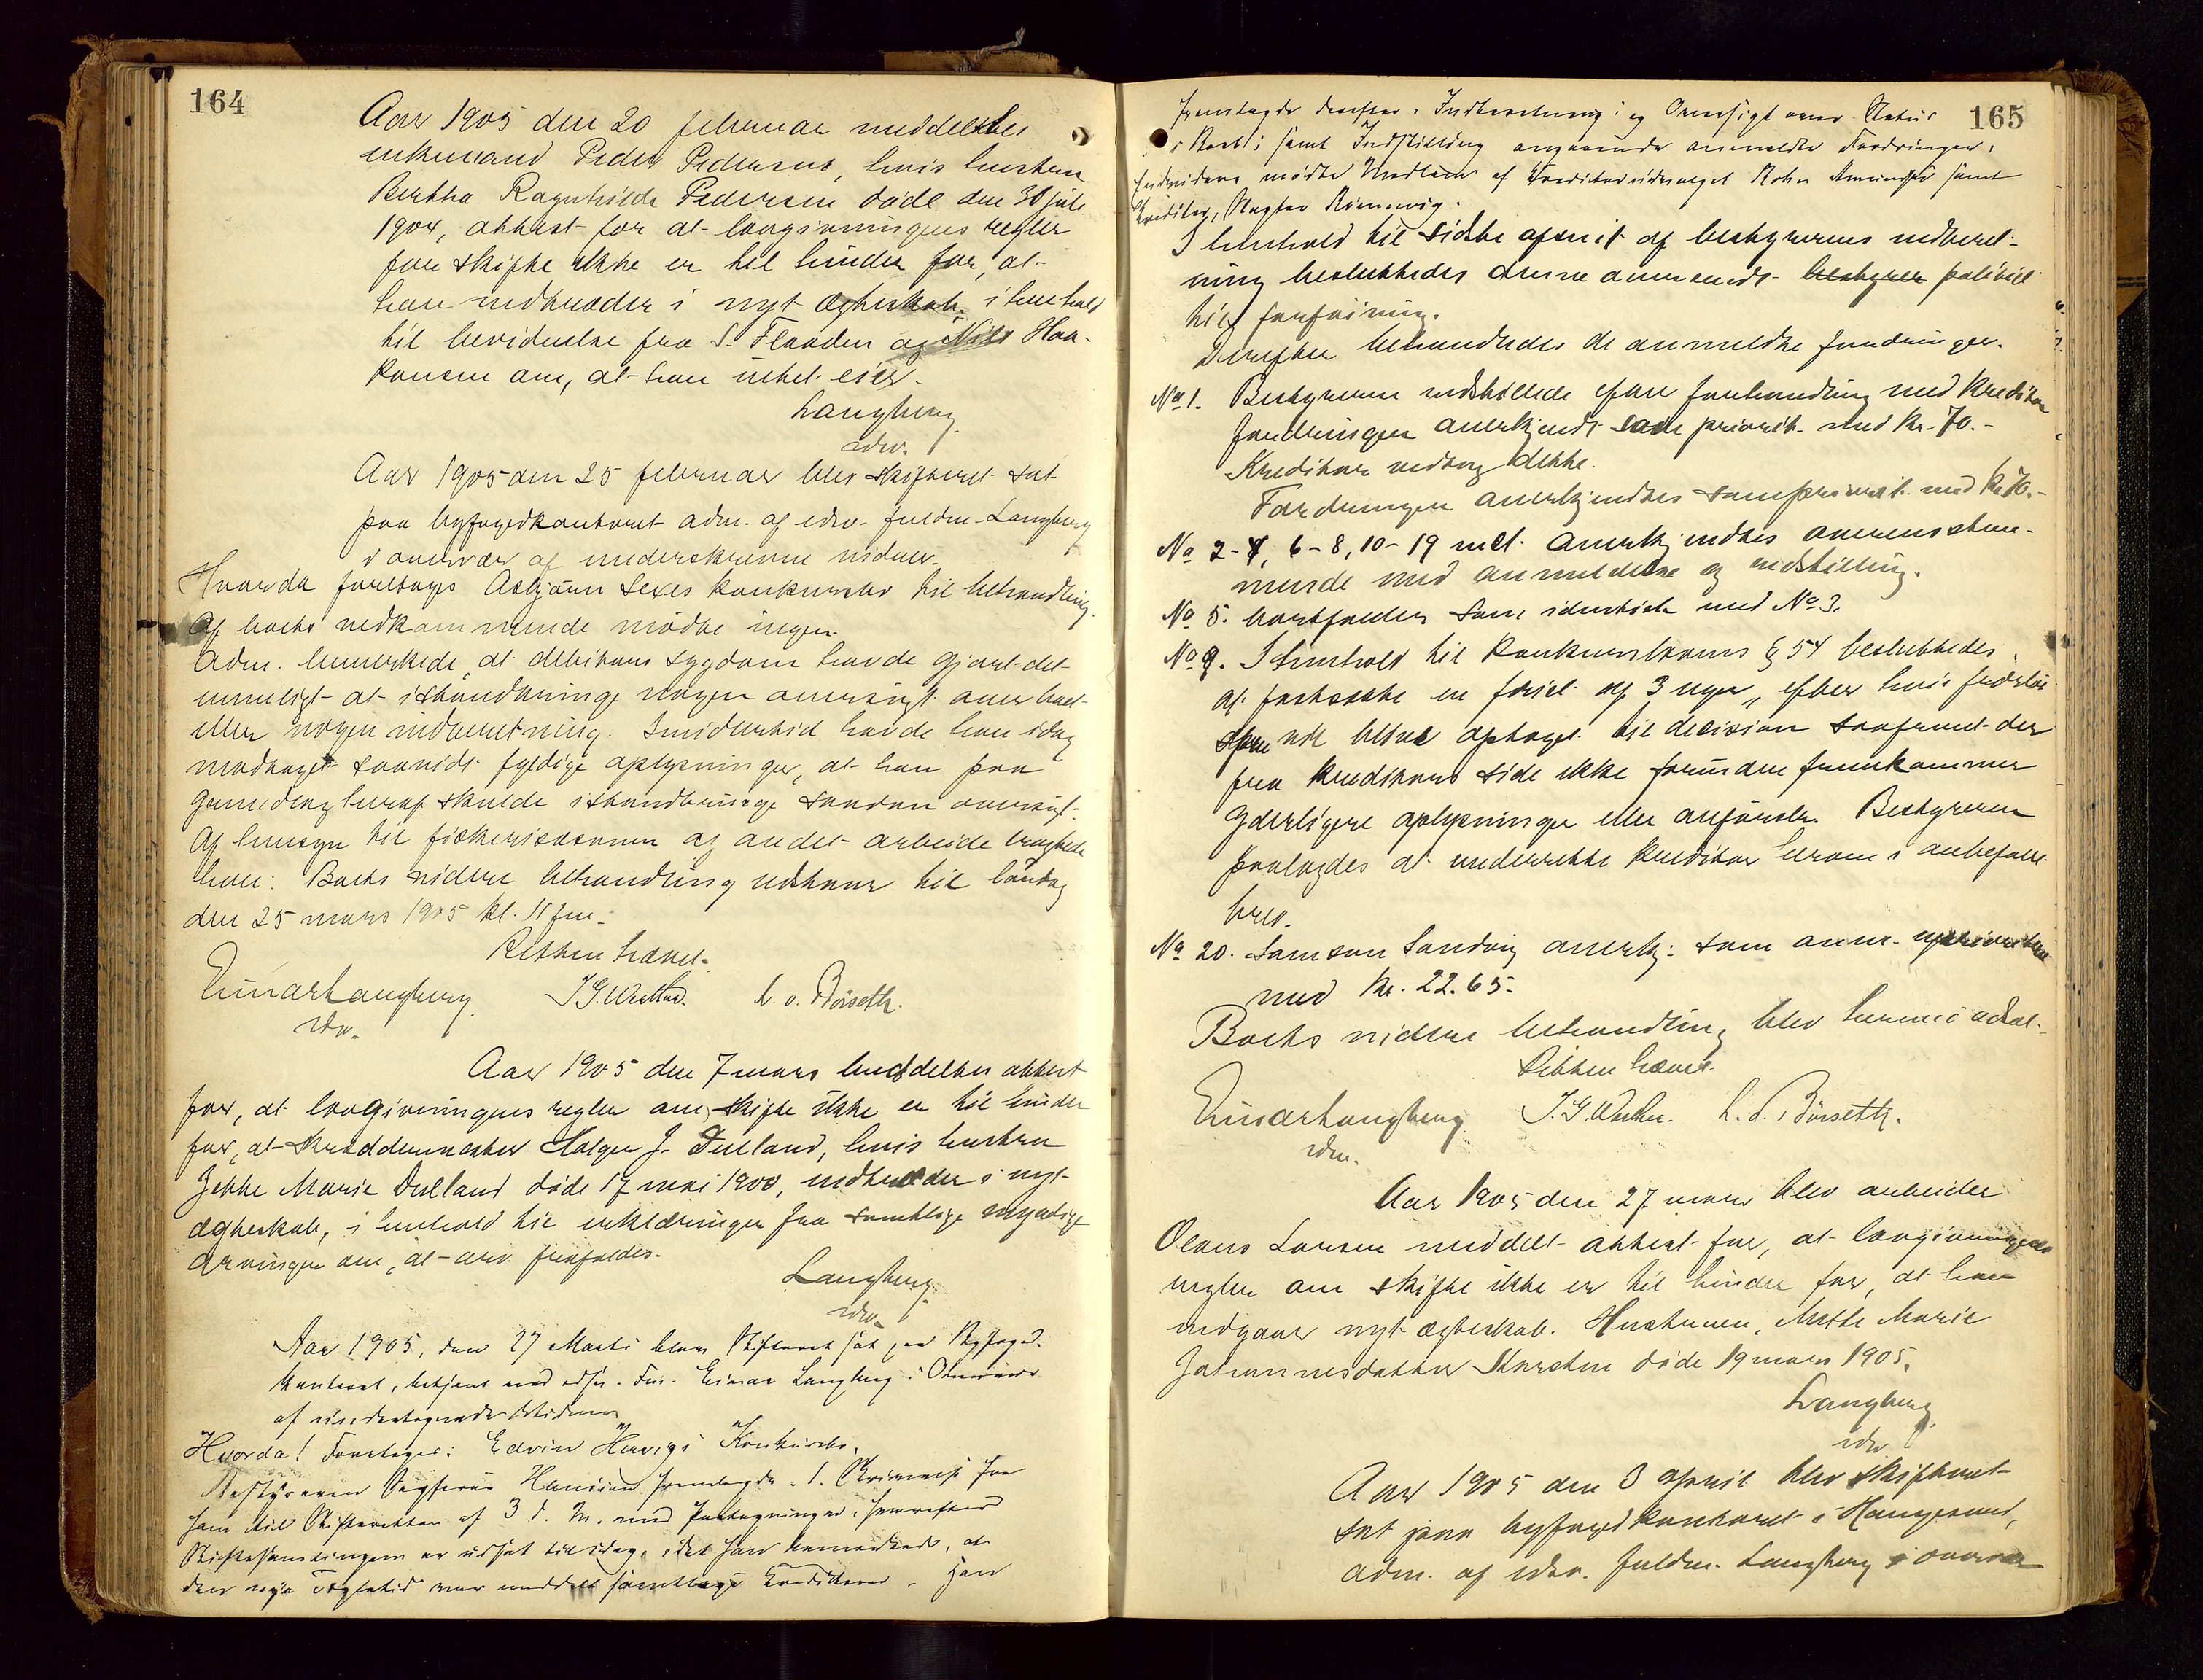 164
Aar 1905 den 20 februar meddeltes
enkemand Peder Pedersen, hvis hustru
Bertha Ragnhilda Pedersen døde den 30 juli
1904, attest for at lovgivningens regler
for skifte ikke er til hinder for, at
han indtræder i nyt ægteskab, i henhold
til bevidnelse fra S. Flaaden og Nils Haa-
konsen om, at han intet eier.
Langberg
edsv.
Aar 1905 den 25 februar blev skifteret sat
paa byfogedkontoret adm. af edsv. fuldm. Langberg
i overvær af underskrevne vidner.
Hvorda foretoges Asbjørn Sexes konkursbo til behandling.
Af boets vedkommende mødte ingen.
Adm. bemerkede, at debitors sygdom havde gjort det
umuligt at istandbringe nogen oversigt over boet
eller nogen indberetning. Imidlertid havde han idag
modtaget saavidt fyldige oplysninger, at han paa
grundlag heraf skulde istandbringe saadan oversigt.
Af hensyn til fiskerisæsonen og andet arbeide
Boets videre behandling udsattes til lørdag
den 25 mars 1905 kl. 11 fm.
Retten hævet.
Einar Langberg J G. L. O. Børseth.
edsv.
Aar 1905 den 7 mars meddeltes attest
for, at lovgivningens regler om skifte ikke er til hinder
for, at skræddermester Holger J. Dulland, hvis hustru
Jette Marie Dulland døde 17 mai 1900, indtræder i nyt
ægteskab, i henhold til erklæringer fra samtlige myndige
arvinger om, at arv frafaldes.
Langberg
edsv.
Aar 1905, den 27 Marts blev Skifteret sat paa Byfoged-
kontoret, betjent ved edsv. Fm. Einar Langberg i Overvær
af undertegnede Vidner
Hvorda! Foretoges: Edvin Konkursbo.
Bestyreren Sagfører Hansen fremlagde 1. Skrivelse fra
ham til Skifteretten af 3 d. M. med Paategninger, hvorefter
Skiftesamlingen er udsat til idag, idet han bemerkede, at
den nye Tægtetid var meddelt samtlige Kreditorer. Han
165
fremlagde derefter Indberetning og Oversigt over Status
i Boet samt Indstilling angaaende anmeldte Fordringer.
Endvidere mødte Medlem af Kreditorudvalget samt
Kreditor, Slagter
I henhold til sidste afsnit af bestyrerens indberet-
ning besluttedes denne oversendt bestyrer politiet
til forføining.
Derefter behandledes de anmeldte fordringer.
No 1. Bestyreren indstillede efter forhandling med kreditor
fordringen anerkjendt som priorit. med kr. 70.-
Kreditor vedtog dette.
Fordringen anerkjendtes som priorit. med kr. 70.-
No 2-4, 6-8, 10-19 incl. anerkjendtes overensstem-
mende med anmeldelse og indstilling.
No 5. bortfalder som identisk med No 3.
No 9. I henhold til konkurslovens § 54 besluttedes
at fastsætte en frist af 3 uger, efter hvis forløb
vil blive optaget til decision saafremt der
fra kreditors side ikke forinden fremkommer
yderligere oplysninger eller anførsler. Bestyreren
paalagdes at underrette kreditor herom i anbefalet
brev.
No 20. Samson Sandvig anerkj. som anm. uprioriteret
med kr. 22.65.
Boets videre behandling blev herunder udsat.
Retten hævet.
Einar Langberg J. G. L. O. Børseth.
edsv.
Aar 1905 den 27 mars blev arbeider
Olaus Larsen meddelt attest for, at lovgivningens
regler om skifte ikke er til hinder for, at han
indgaar nyt ægteskab. Hustruen, Mette Marie
Johannesdatter døde 19 mars 1905.
Langberg
edsv.
Aar 1905 den 3 april blev skifteret
sat paa byfogedkontoret i Haugesund,
adm. af edsv. fuldm. Langberg i overvær